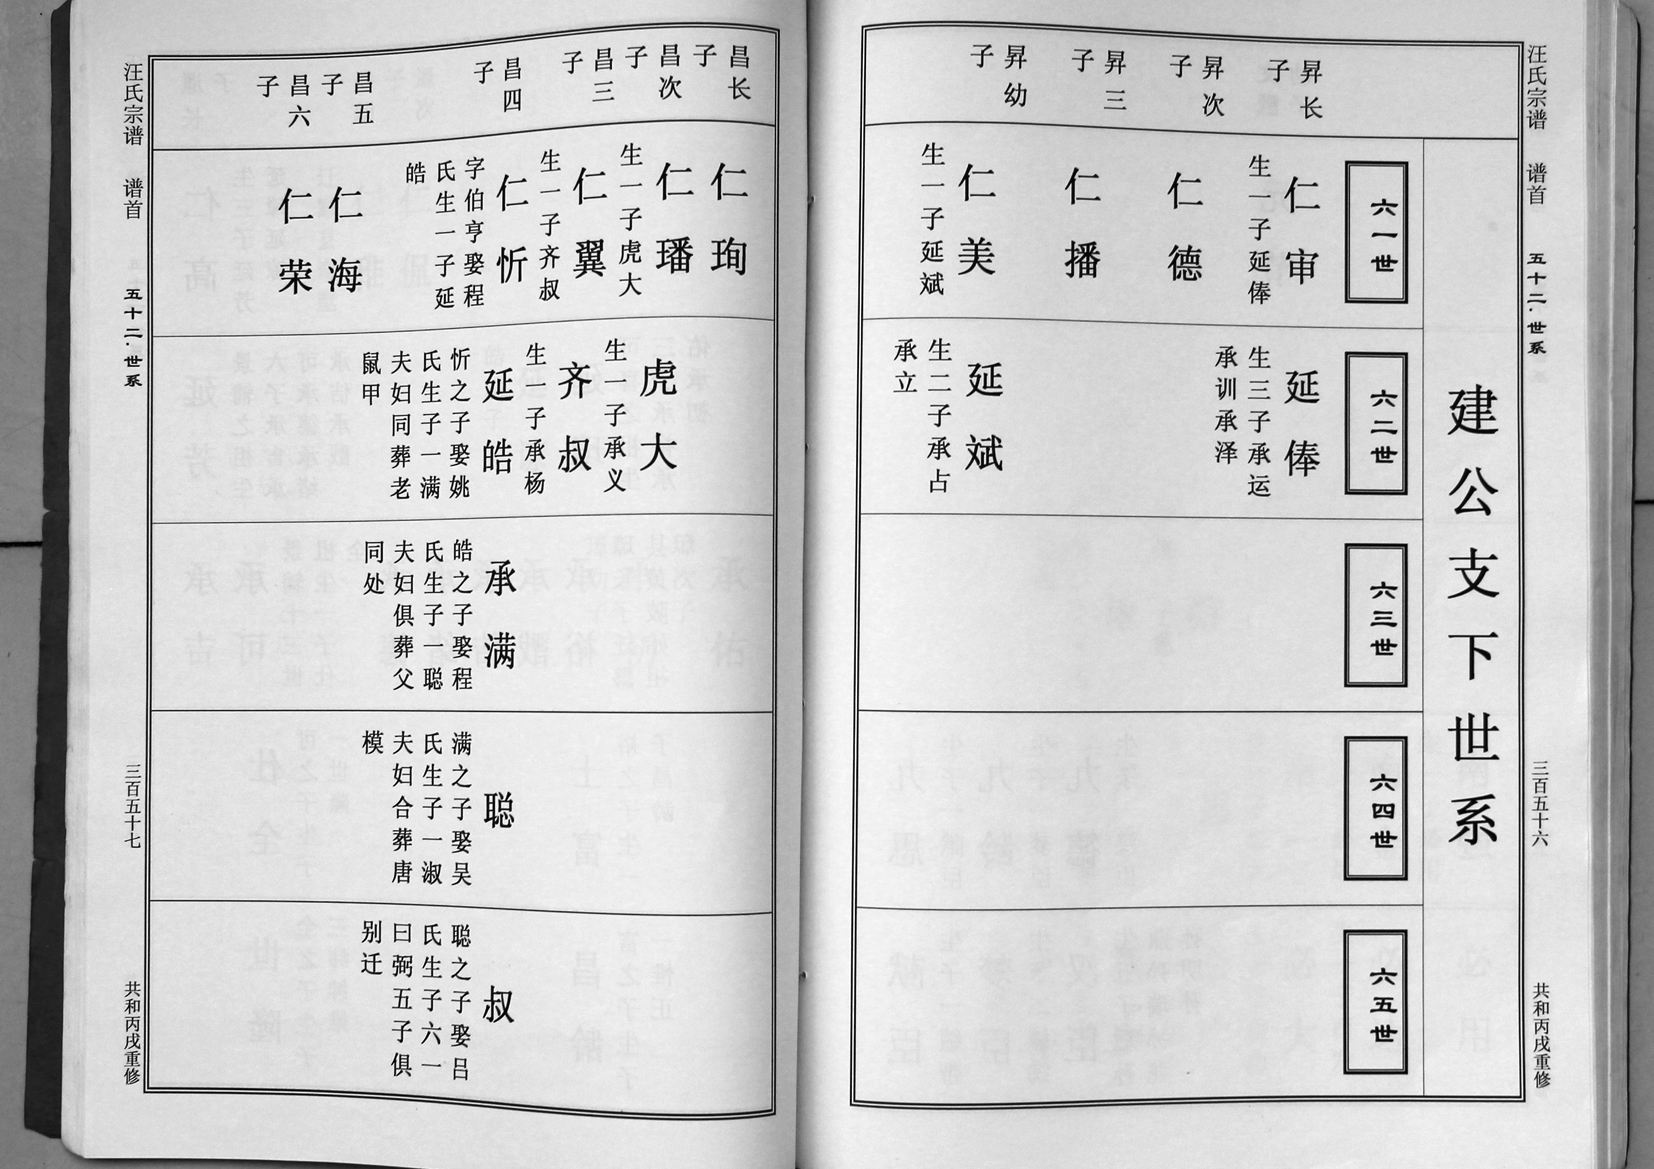 汪氏宗谱 谱首 五十二·世系 三百五十六 共和丙戌重修
建公支下世系
六一世
六二世
六三世
六四世
六五世
昇长子
仁审
生一子延俸
延俸
生三子承运
承训承泽
昇次子
仁德
昇三子
仁播
昇幼子
仁美
生一子延斌
延斌
生二子承占
承立
昌长子
仁珣
昌次子
仁璠
生一子虎大
虎大
生一子承义
昌三子
仁翼
生一子齐叔
齐叔
生一子承杨
昌四子
仁忻
字伯亨娶程
氏生一子延
皓
延皓
忻之子娶姚
氏生子一满
夫妇同葬老
鼠甲
承满
皓之子娶程
氏生子一聪
夫妇俱葬父
同处
聪
满之子娶吴
氏生子一淑
夫妇合葬唐
模
叔
聪之子娶吕
氏生子六一
曰弼五子俱
别迁
昌五子
仁海
昌六子
仁荣
汪氏宗谱 谱首 五十二·世系 三百五十七 共和丙戌重修